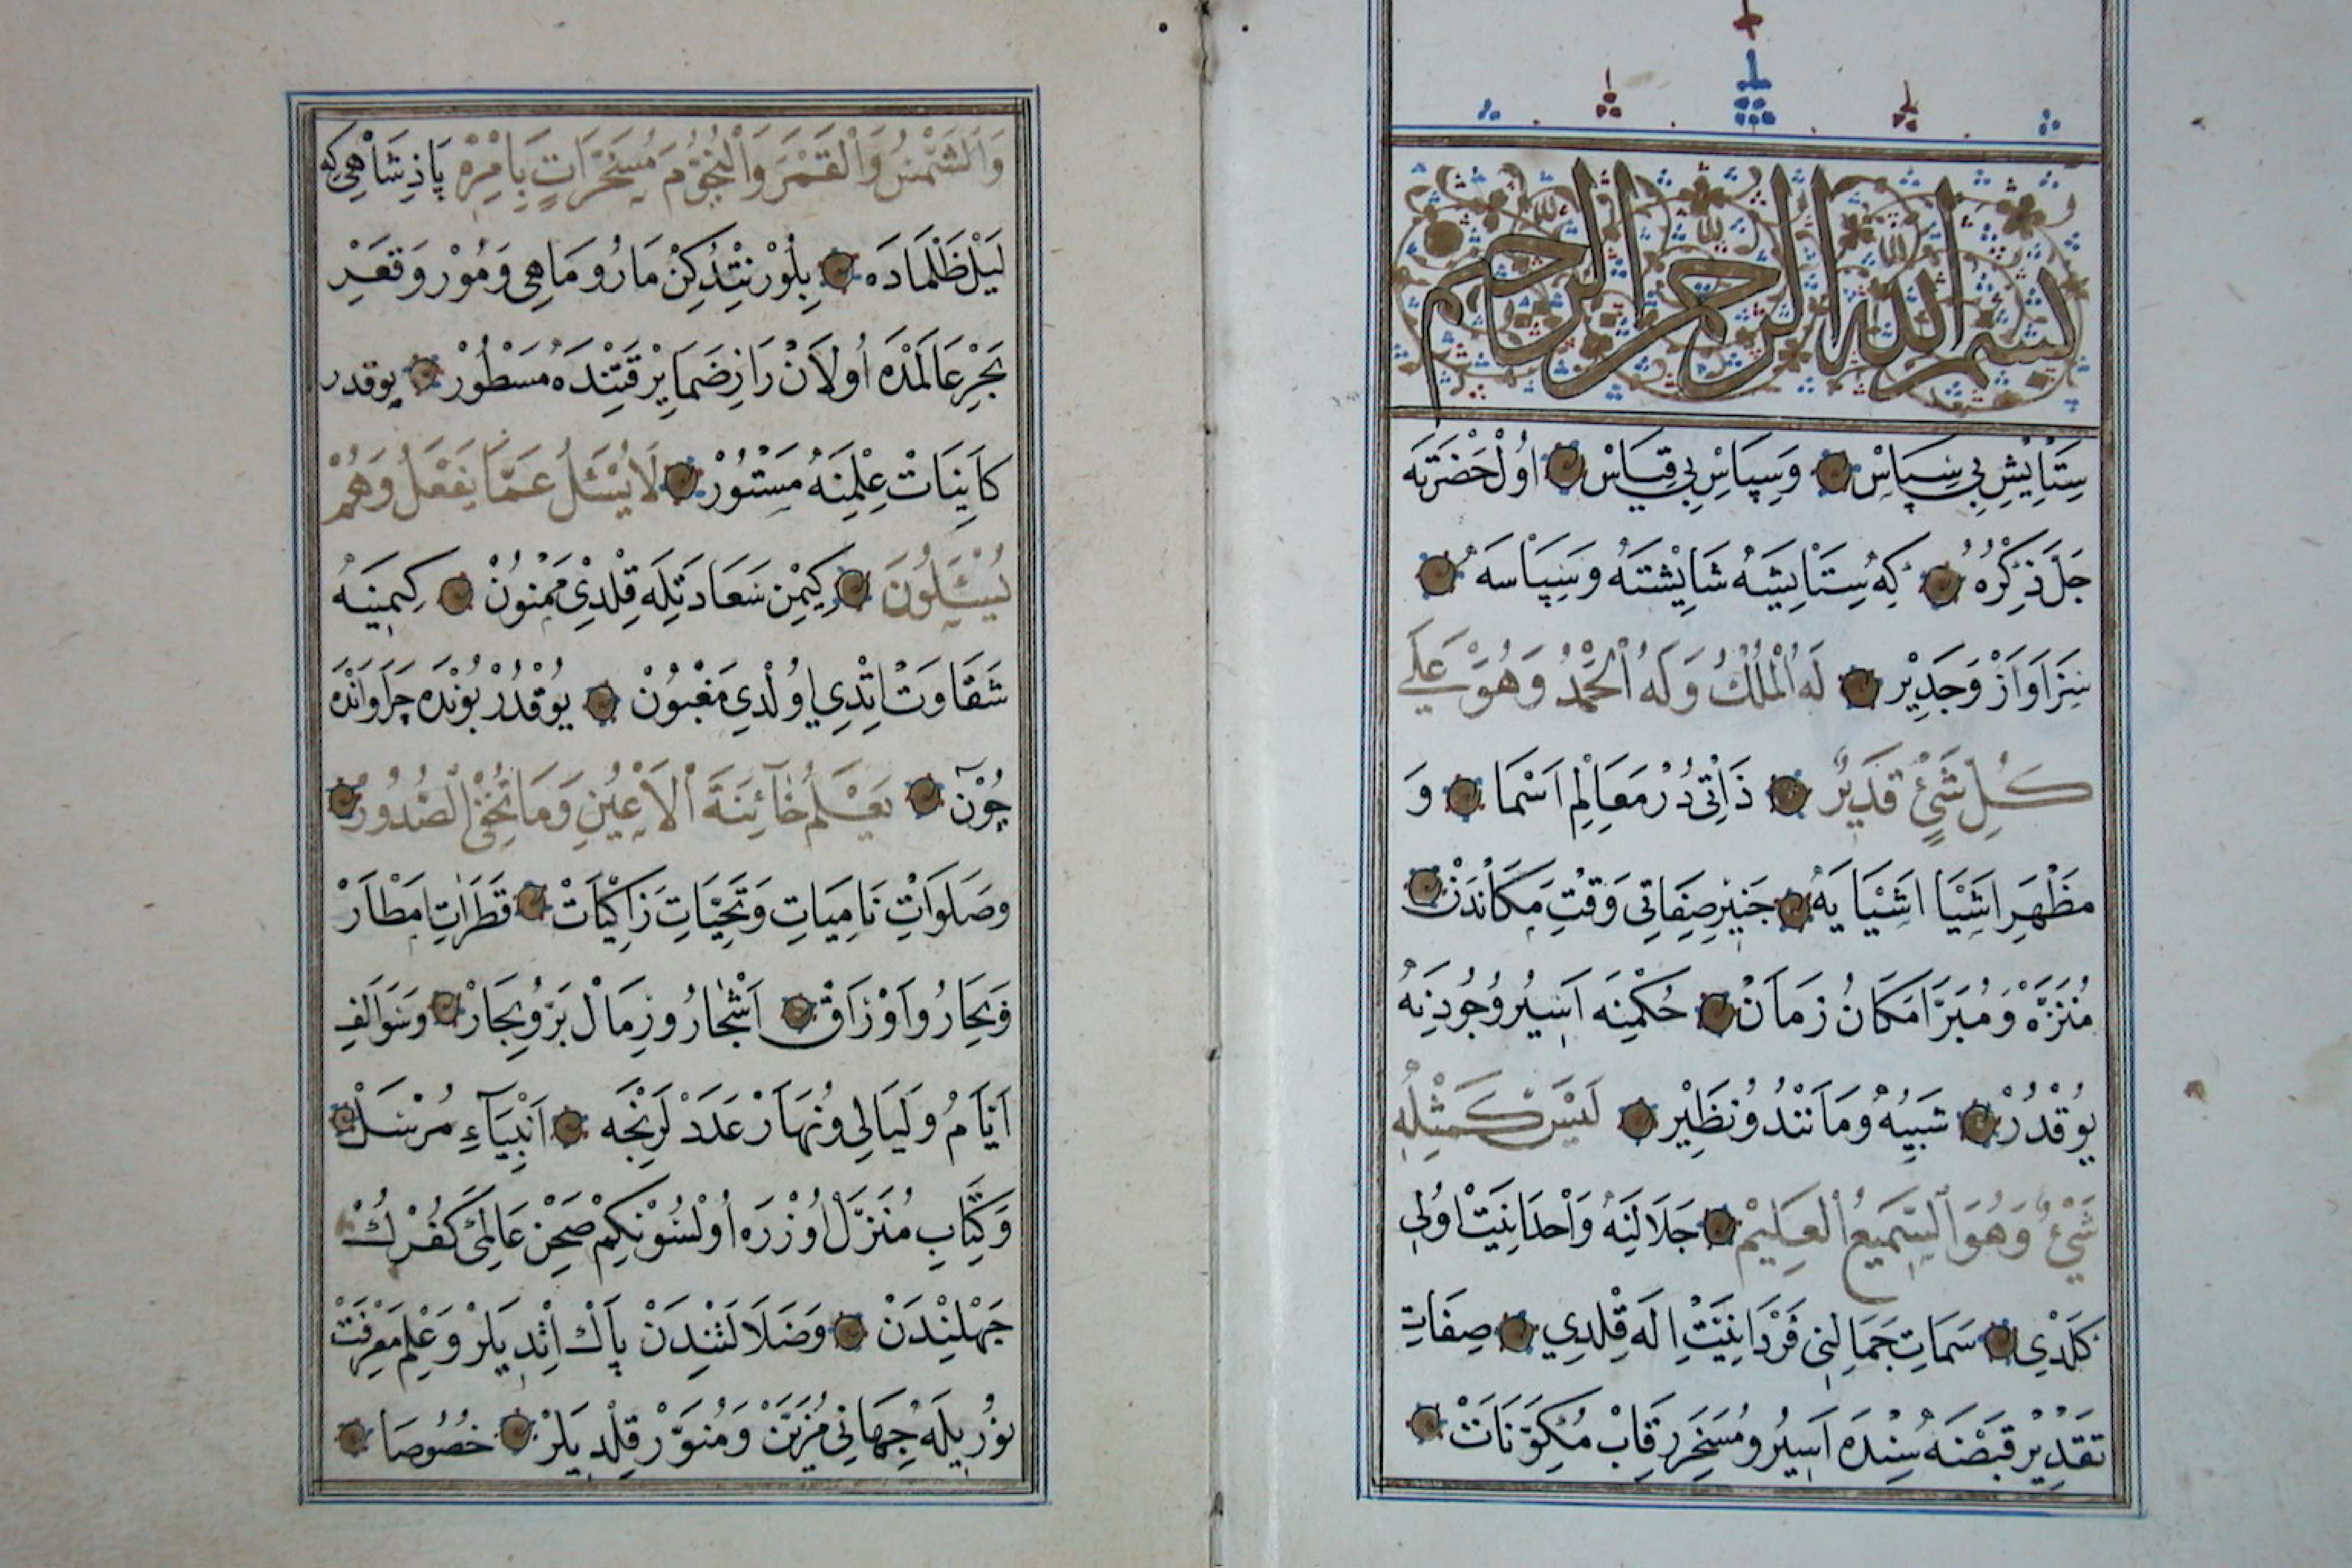 بسم الله الرحمن الرحيم
سِتَايِشِ بِي سِپَاسْ وَسِپَاسِ بِي قِيَاسْ اوُلْ حَضْرَتَه
جَلَّ ذِكْرُهُ كِه سِتَايِشَهْ شَايِشْتَهْ وَسِپَاسَهْ
سِزَاوَارْ وَجَدِيْر لَهُ الْمُلْكُ وَلَهُ الْحَمْدُ وَهُوَ عَلَى
كُلِّ شَيْءٍ قَدِيرٌ ذَاتِى دُرْ مَعَالِمِ اَسْمَا وَ
مَظْهَرِ اَشْيَا اَشْيَا يَهْ صِفَاتِى وَقْتِ مَكَانْدَنْ
مُنَزَّهْ وُ مُبَرَّا مَكَانُ زَمَانْ حُكْمِنَه اَسِيْر وُجُودِنَهْ
يُوقْدُرْ شَبِيْهُ وُ مَانَنْدُ وُ نَظِيْر لَيْسَ كَمِثْلِهِ
شَيْءٌ وَهُوَ السَّمِيعُ الْعَلِيمْ جَلَالِنَهْ وَاحْدَانِيَتْ اوُلِى
كَلْدِى سَمَاتِ جَمَالِنِى فَرْدَانِيَتْ اِلَه قِلْدِي صِفَاتِ
تَقْدِيْر قَبْضَه سِنْدَه اَسِيْرُ و مُسَخَّر رِقَابْ مُكَوَّنَاتْ
وَالشَّمْسُ وَالْقَمَرَ وَالنُّجُومَ مُسَخَّرَاتٍ بِاَمْرِهِ پَاذِشَاهِى كِه
لَيْلِ ظَلْمَادَه بِلُوْرْ نِتِدُكِنْ مَارُ و مَاهِى وَ مُوْر وَ قَعْرِ
بَحْرِ عَالَمْدَه اُولَانْ رَازِ ضَمَايِرْ قَتِنْدَه مَسْطُوْرْ يوقدر
كَايِنَاتْ عِلْمِنَهْ مَسْتُوْرْ لَا يُسْئَلُ عَمَّا يَفْعَلُ وَهُمْ
يُسْئَلُونَ كِيْمِن سَعَادَتِلَه قِلْدِىْ مَمْنُونْ كِيمِنِهْ
شَقَاوَتْ اِتْدِي اوُلْدِي مَغْبُوْنْ يُوقْدُرْ بُونْدَه چِرَا وَانْدَه
چُوْن يَعْلَمُ خَآئِنَةَ الْاَعْيُنِ وَمَا تُخْفِى الصُّدُورْ
وصَلَوَاتِ نَامِيَاتِ وَتَحِيَّاتِ زَاكِيَاتْ قَطَرَاتِ اَمْطَارْ
وَبِحَارُ و اَوْرَاقْ اَشْجَارُ و رِمَالْ بَرُّ و بِحَارْ وَسَوَالَفِ
اَيَّامُ و لَيَالِى وُ نَهَارْ عَدَدْ لَرِنْجَه اَنْبِيَآءِ مُرْسَلْ
وَكِتَابِ مُنَزَّلْ اُوزْرَه اوُلْسُوْنكِمْ صَحْنِ عَالَمِىْ كُفْرْكْ
جَهْلِنْدَنْ وَ ضَلَالَتِنْدَنْ پَاكْ اِتْدِيلَرْ وَ عِلْمِ مَعْرِفَتْ
نُورِيلَهْ جِهَانِى مُزَيَّنْ وَمُنَوَّرْ قِلْدِيلَرْ خُصُوصَا